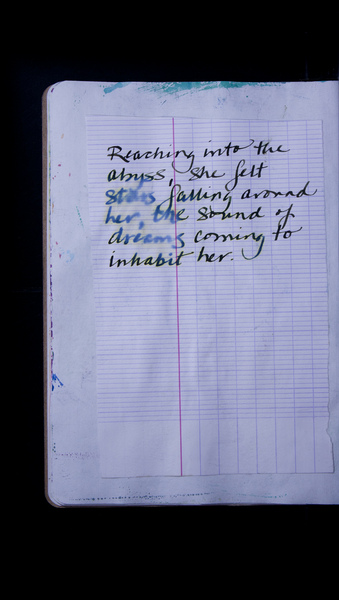 Reaching into the
abyss, she felt
stars falling around
her, the sound of
dreams coming to
inhabit her.